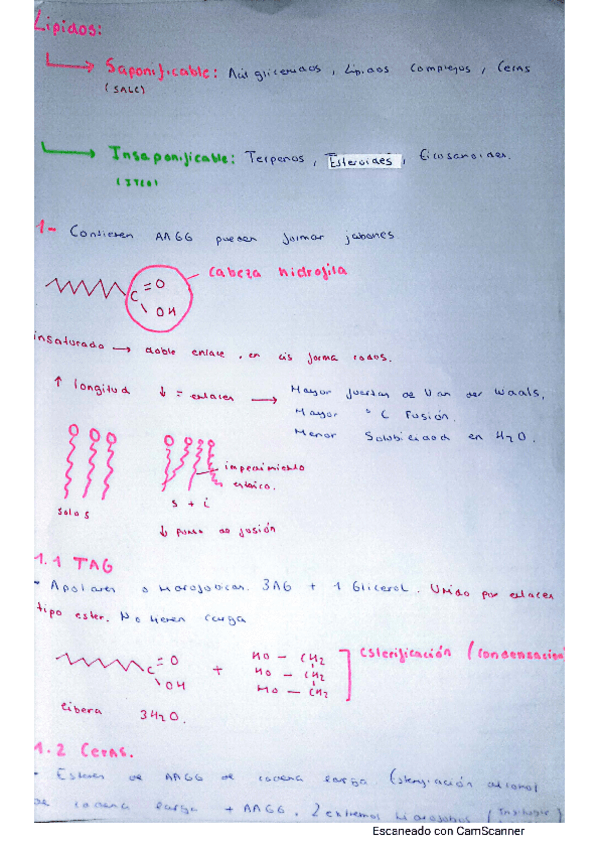 Lípidos:
Saponificable: Acilgliceridos, Lípidos Complejos, Ceras
(SALC)
Insaponificable: Terpenos, Esteroides, Eicosanoides.
(ITEO)
1- Contienen AAGG pueden formar jabones.
cabeza hidrófila
C = O
\ OH
insaturado → doble enlace, en cis forma codos.
↑ longitud ↓ = enlaces → Mayor fuerzas de Van der Waals,
Mayor °C Fusión.
Menor Solubilidad en H2O.
impedimiento
estérico.
solo s
s + i
↓ punto de fusión
1.1 TAG
- Apolares o Hidrofóbicas. 3AG + 1 Glicerol. Unido por enlaces
tipo ester. No tienen carga
C = O \ OH + HO - CH2
HO - CH2
HO - CH2
Esterificación (condensación)
libera 3H2O.
1.2 Ceras.
- Esteres de AAGG de cadena larga. (Esterificación alcohol
de cadena larga + AAGG, 2 extremos hidrófobos
Escaneado con CamScanner